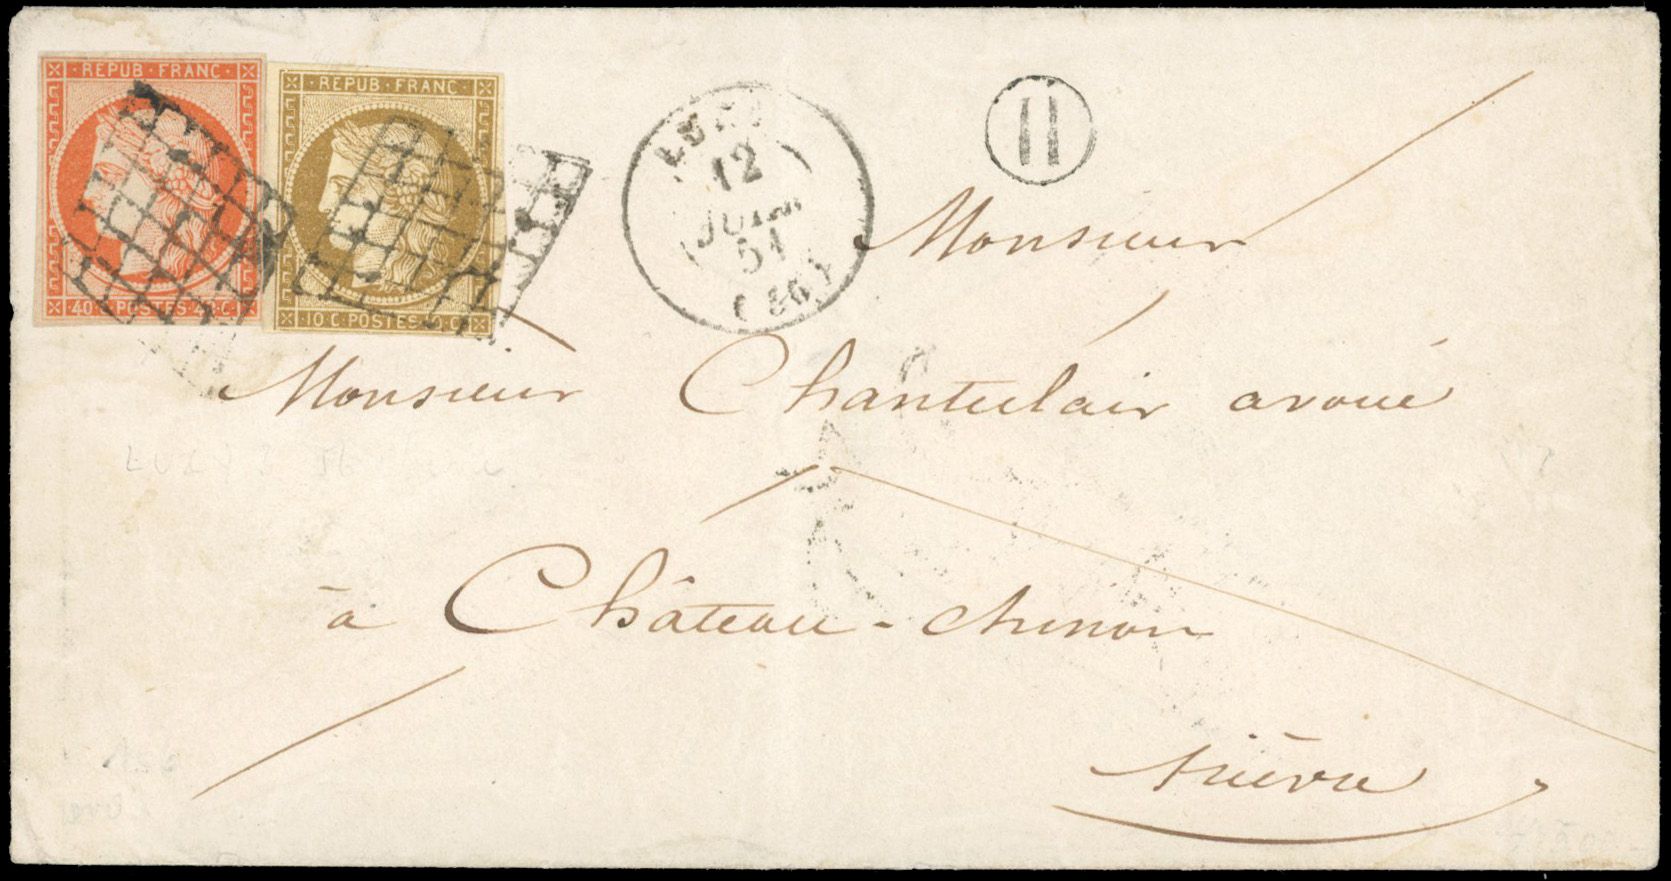 REPUB · FRANC ·
40 · C · POSTES · 40 · C ·
· REPUB · FRANC ·
10 C · POSTES · 10 C ·
LUZY
12
JUIL.
51
(56)
H
Monsieur
Monsieur Chantelair avoué
à Château-chinon
Nièvre